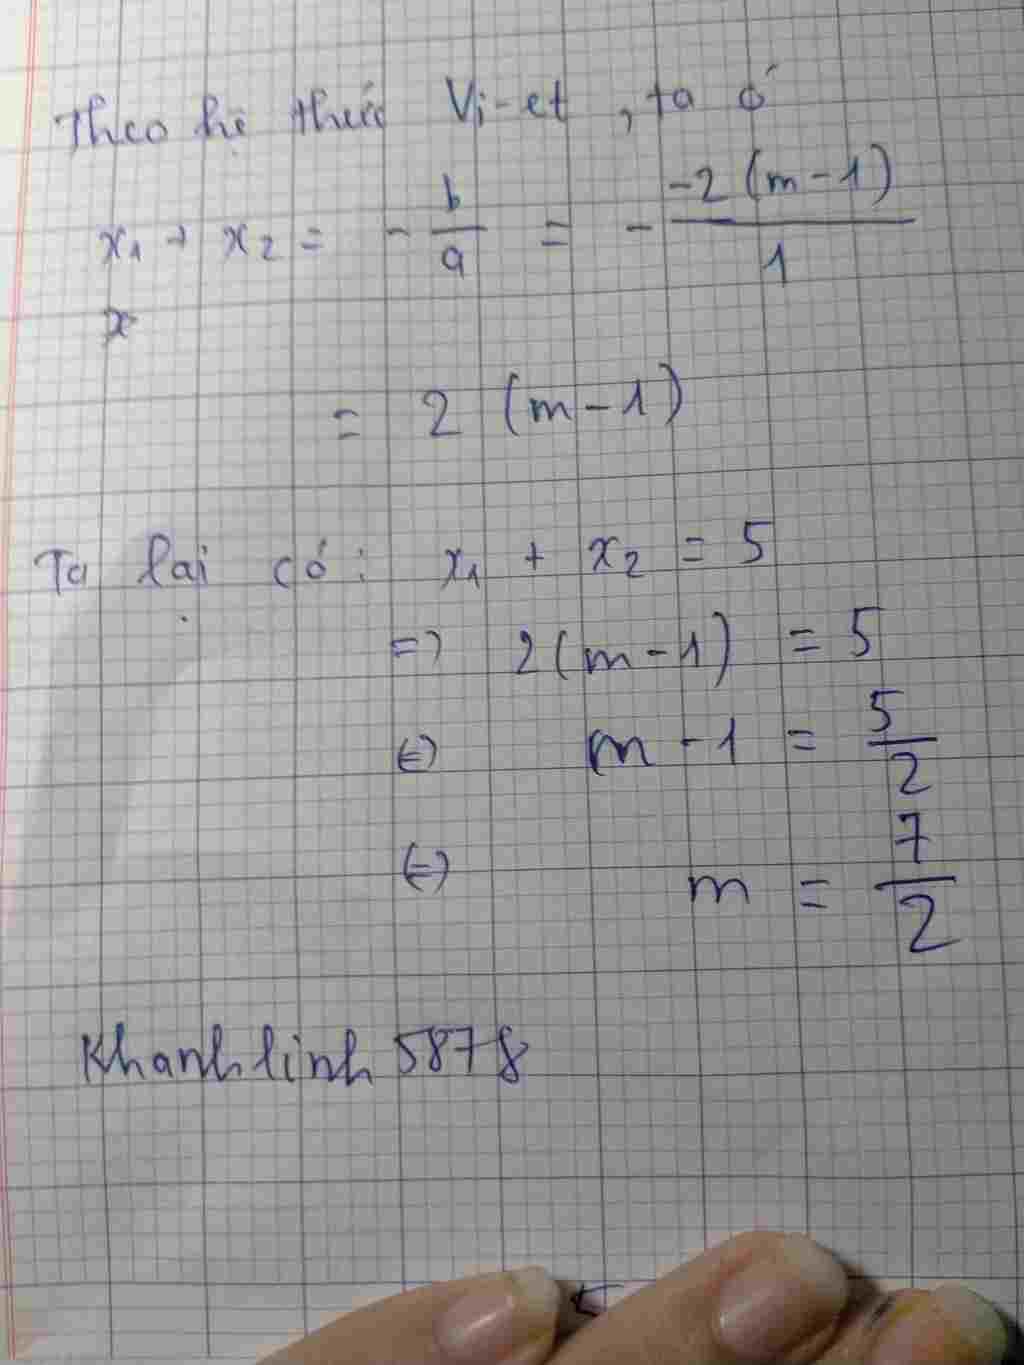 Theo hệ thức Vi-et, ta có
x₁ + x₂ = - b/a = - -2(m-1)/1
x
= 2 (m-1)
Ta lại có: x₁ + x₂ = 5
=> 2(m-1) = 5
<=> m - 1 = 5/2
<=> m = 7/2
Khanhlinh 5878